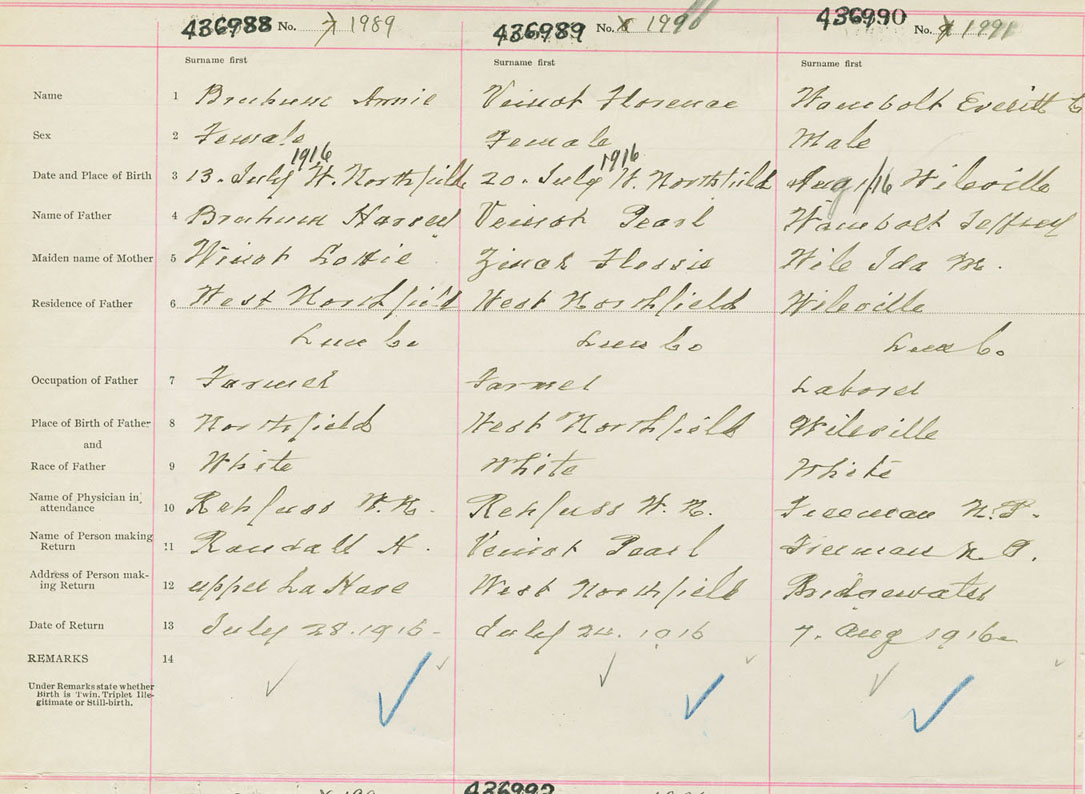 436988 No. 7 1989 436989 No. 8 1990 436990 No. 9 1991
Surname first Surname first Surname first
Name 1 Bruhum Annie Veinot Florence Wambolt Everitt C
Sex 2 Female Female Male
1916 1916
Date and Place of Birth 3 13. July W. Northfield 20. July W. Northfield Aug 1/16 Wileville
Name of Father 4 Bruhum Veinot Pearl Wambolt Jeffrey
Maiden name of Mother 5 Winot Lottie Zinck Flossie Wile Ida M.
Residence of Father 6 West Northfield West Northfield Wileville
Lun Co Lun Co Lun Co
Occupation of Father 7 Farmer Farmer Laborer
Place of Birth of Father 8 Northfield West Northfield Wileville
and
Race of Father 9 White White White
Name of Physician in attendance 10 Rehfuss W. N. Rehfuss W. N. Freeman N. P.
Name of Person making Return 11 Randall H. Veinot Pearl Freeman N. P.
Address of Person making Return 12 upper La Have West Northfield Bridgewater
Date of Return 13 July 28. 1916 - July 24. 1916 7. Aug 1916
REMARKS 14
Under Remarks state whether
Birth is Twin. Triplet Ille-
gitimate or Still-birth.
436992